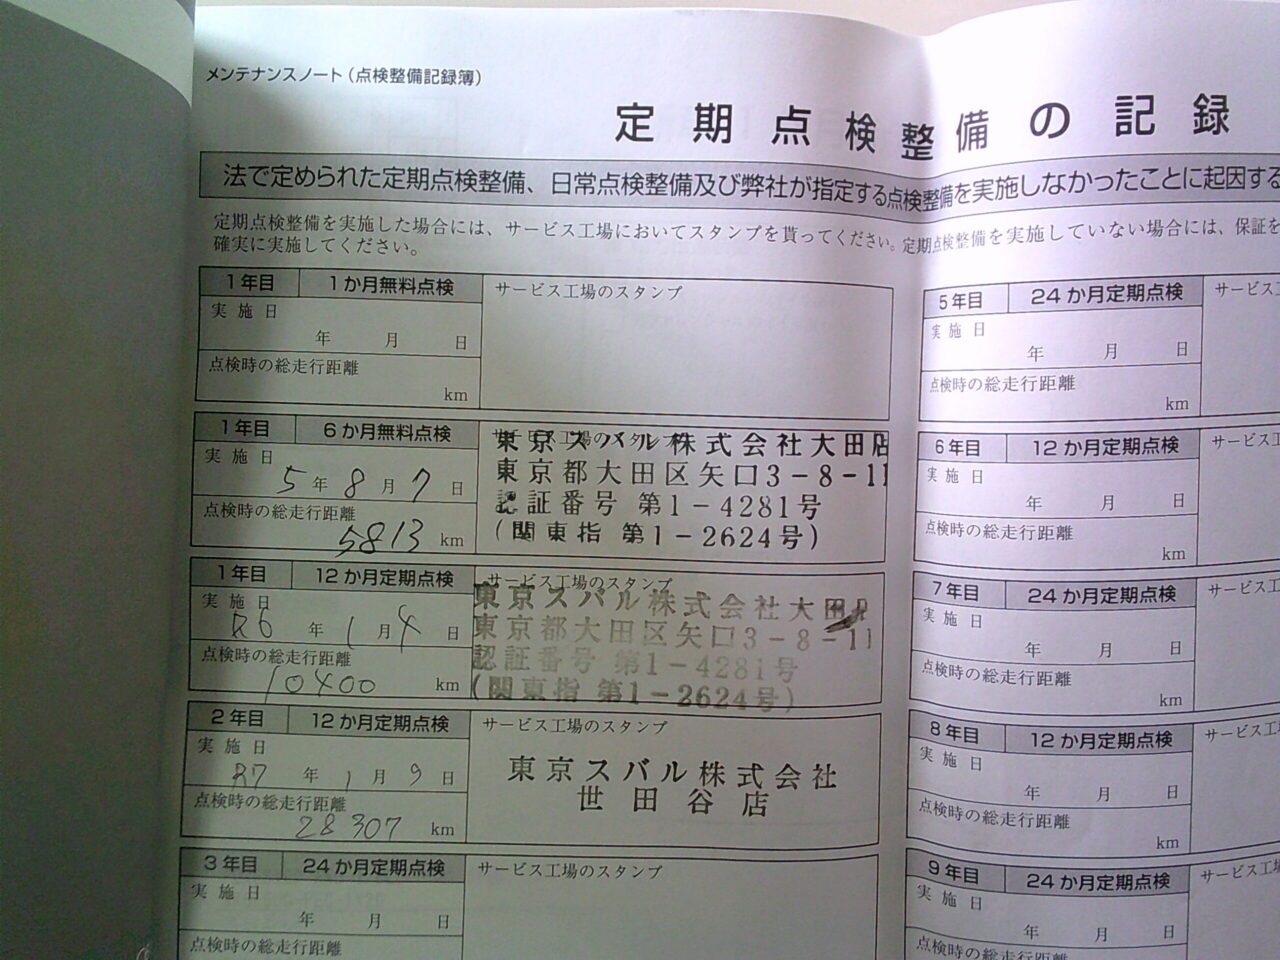 メンテナンスノート（点検整備記録簿）
定期点検整備の記録
法で定められた定期点検整備、日常点検整備及び弊社が指定する点検整備を実施しなかったことに起因する
定期点検整備を実施した場合には、サービス工場においてスタンプを貰ってください。定期点検整備を実施していない場合には、保証を
確実に実施してください。
1年目 1か月無料点検 サービス工場のスタンプ
実施日
年 月 日
点検時の総走行距離
km
1年目 6か月無料点検 サービス工場のスタンプ
実施日
5年8月7日
点検時の総走行距離
5813 km
東京スバル株式会社大田店
東京都大田区矢口3-8-11
認証番号 第1-4281号
（関東指 第1-2624号）
1年目 12か月定期点検 サービス工場のスタンプ
実施日
R6年1月4日
点検時の総走行距離
10400 km
東京スバル株式会社大田店
東京都大田区矢口3-8-11
認証番号 第1-4281号
（関東指 第1-2624号）
2年目 12か月定期点検 サービス工場のスタンプ
実施日
R7年1月9日
点検時の総走行距離
28307 km
東京スバル株式会社
世田谷店
3年目 24か月定期点検 サービス工場のスタンプ
実施日
年 月 日
点検時の総走行距離
5年目 24か月定期点検 サービス工
実施日
年 月 日
点検時の総走行距離
km
6年目 12か月定期点検 サービス工
実施日
年 月 日
点検時の総走行距離
km
7年目 24か月定期点検 サービス工
実施日
年 月 日
点検時の総走行距離
km
8年目 12か月定期点検 サービス工
実施日
年 月 日
点検時の総走行距離
km
9年目 24か月定期点検 サービス工
実施日
年 月 日
点検時の総走行距離